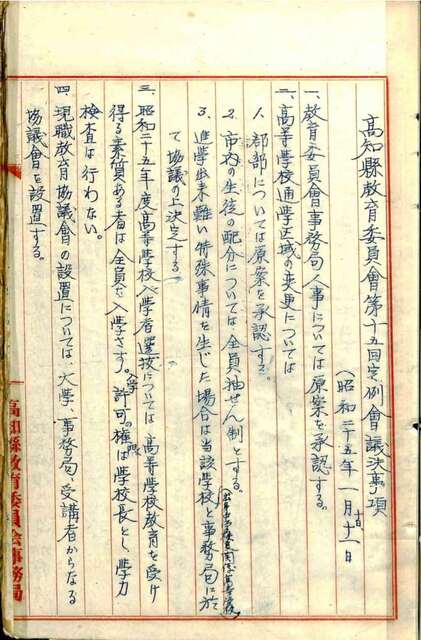 高知縣教育委員會第十五回定例會議決事項
(昭和二十五年一月十一日
十日
一、教育委員會事務局人事については原案を承認する。
二、高等学校通学区域の変更については
1. 郡部については原案を承認する。
2. 市内の生徒の配分については、全員抽せん制とする。
3. 進学出来難い特殊事情を生じた場合は当該学校と事務局に於
て協議の上決定する
三、昭和二十五年度高等学校入学者選抜については、高等学校教育を受け
得る素質ある者は全員を入学さす。入学許可の権は学校長とし、学力
検査は行わない。
四、現職教育協議會の設置については、大学、事務局、受講者からなる
協議會を設置する。
高知縣教育委員会事務局